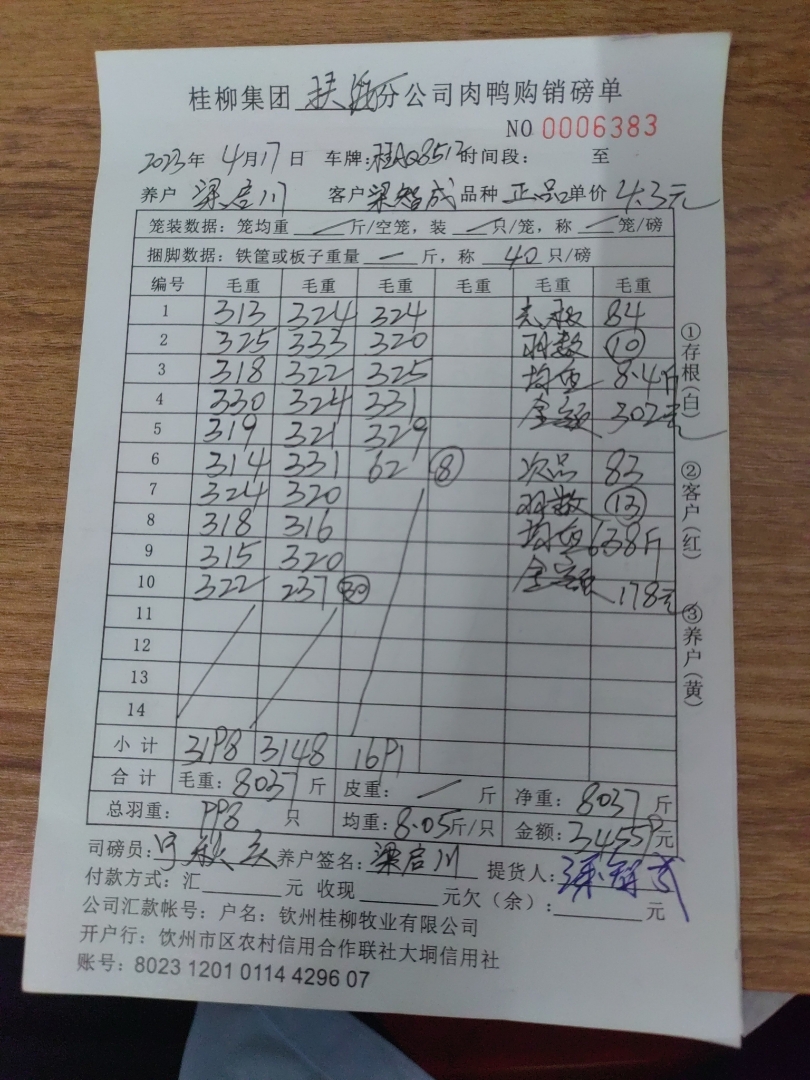 桂柳集团 扶绥 分公司肉鸭购销磅单
NO 0006383
2023年 4月17日 车牌:桂AQ8512 时间段: 至
养户 梁启川 客户 梁智成 品种 正品 单价 4.3元
笼装数据:笼均重 — 斤/空笼,装 — 只/笼,称 — 笼/磅
捆脚数据:铁筐或板子重量 — 斤,称 40 只/磅
编号 毛重 毛重 毛重 毛重 毛重 毛重
1 313 324 324 84
2 325 333 320 羽数 10
3 318 322 325 均重 8.4斤
4 330 324 331 金额 302元
5 319 321 329
6 314 331 62 8 次品 83
7 324 320 羽数 13
8 318 316 均重 6.38斤
9 315 320 金额
10 322 237 30 178元
11
12
13
14
小计 3198 3148 1691
合计 毛重:8037 斤 皮重: — 斤 净重:8037 斤
总羽重: 998 只 均重:8.05斤/只 金额:34559元
司磅员: 养户签名:梁启川 提货人:梁智成
付款方式:汇 元 收现 元欠(余): 元
公司汇款帐号:户名:钦州桂柳牧业有限公司
开户行:钦州市区农村信用合作联社大垌信用社
账号:8023 1201 0114 4296 07
①存根(白) ②客户(红) ③养户(黄)